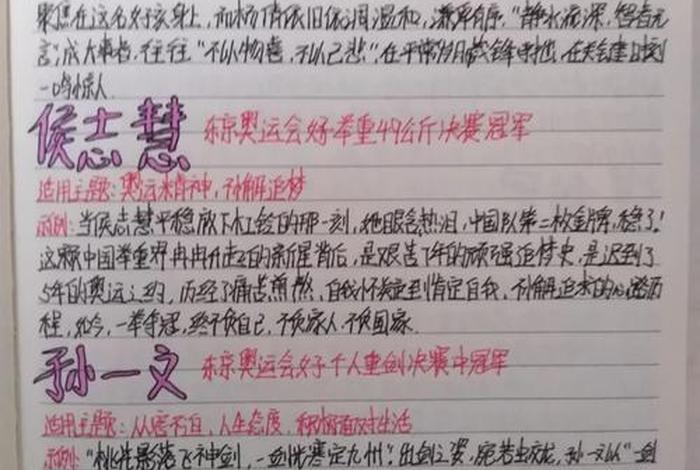 在这名好孩身上，而杨倩依旧依润温和，满屏有序。“静水流深，智者无
言”，成大事者，往往“不以物喜，不以己悲”，在平常岁月藏锋守拙，在关键时刻
一鸣惊人
侯志慧 东京奥运会女子举重49公斤决赛冠军
适用主题：奥运精神，不懈追梦
示例：当侯志慧平稳放下杠铃的那一刻，她眼含热泪，中国队第二枚金牌，稳了！
这颗中国举重界冉冉升起的新星背后，是艰苦7年的顽强追梦史，是迟到了
5年的奥运之约，历经了痛苦煎熬，自我怀疑到肯定自我，不懈追求的心路历
程，如今，一举夺冠，终不负自己，不负家人，不负国家.
孙一文 东京奥运会女子个人重剑决赛中冠军
适用主题：从容不迫，人生态度，积极面对生活
示例：“桃花影落飞神剑，一剑光寒定九州”，出剑之姿，宛若蛟龙，孙一文以“一剑